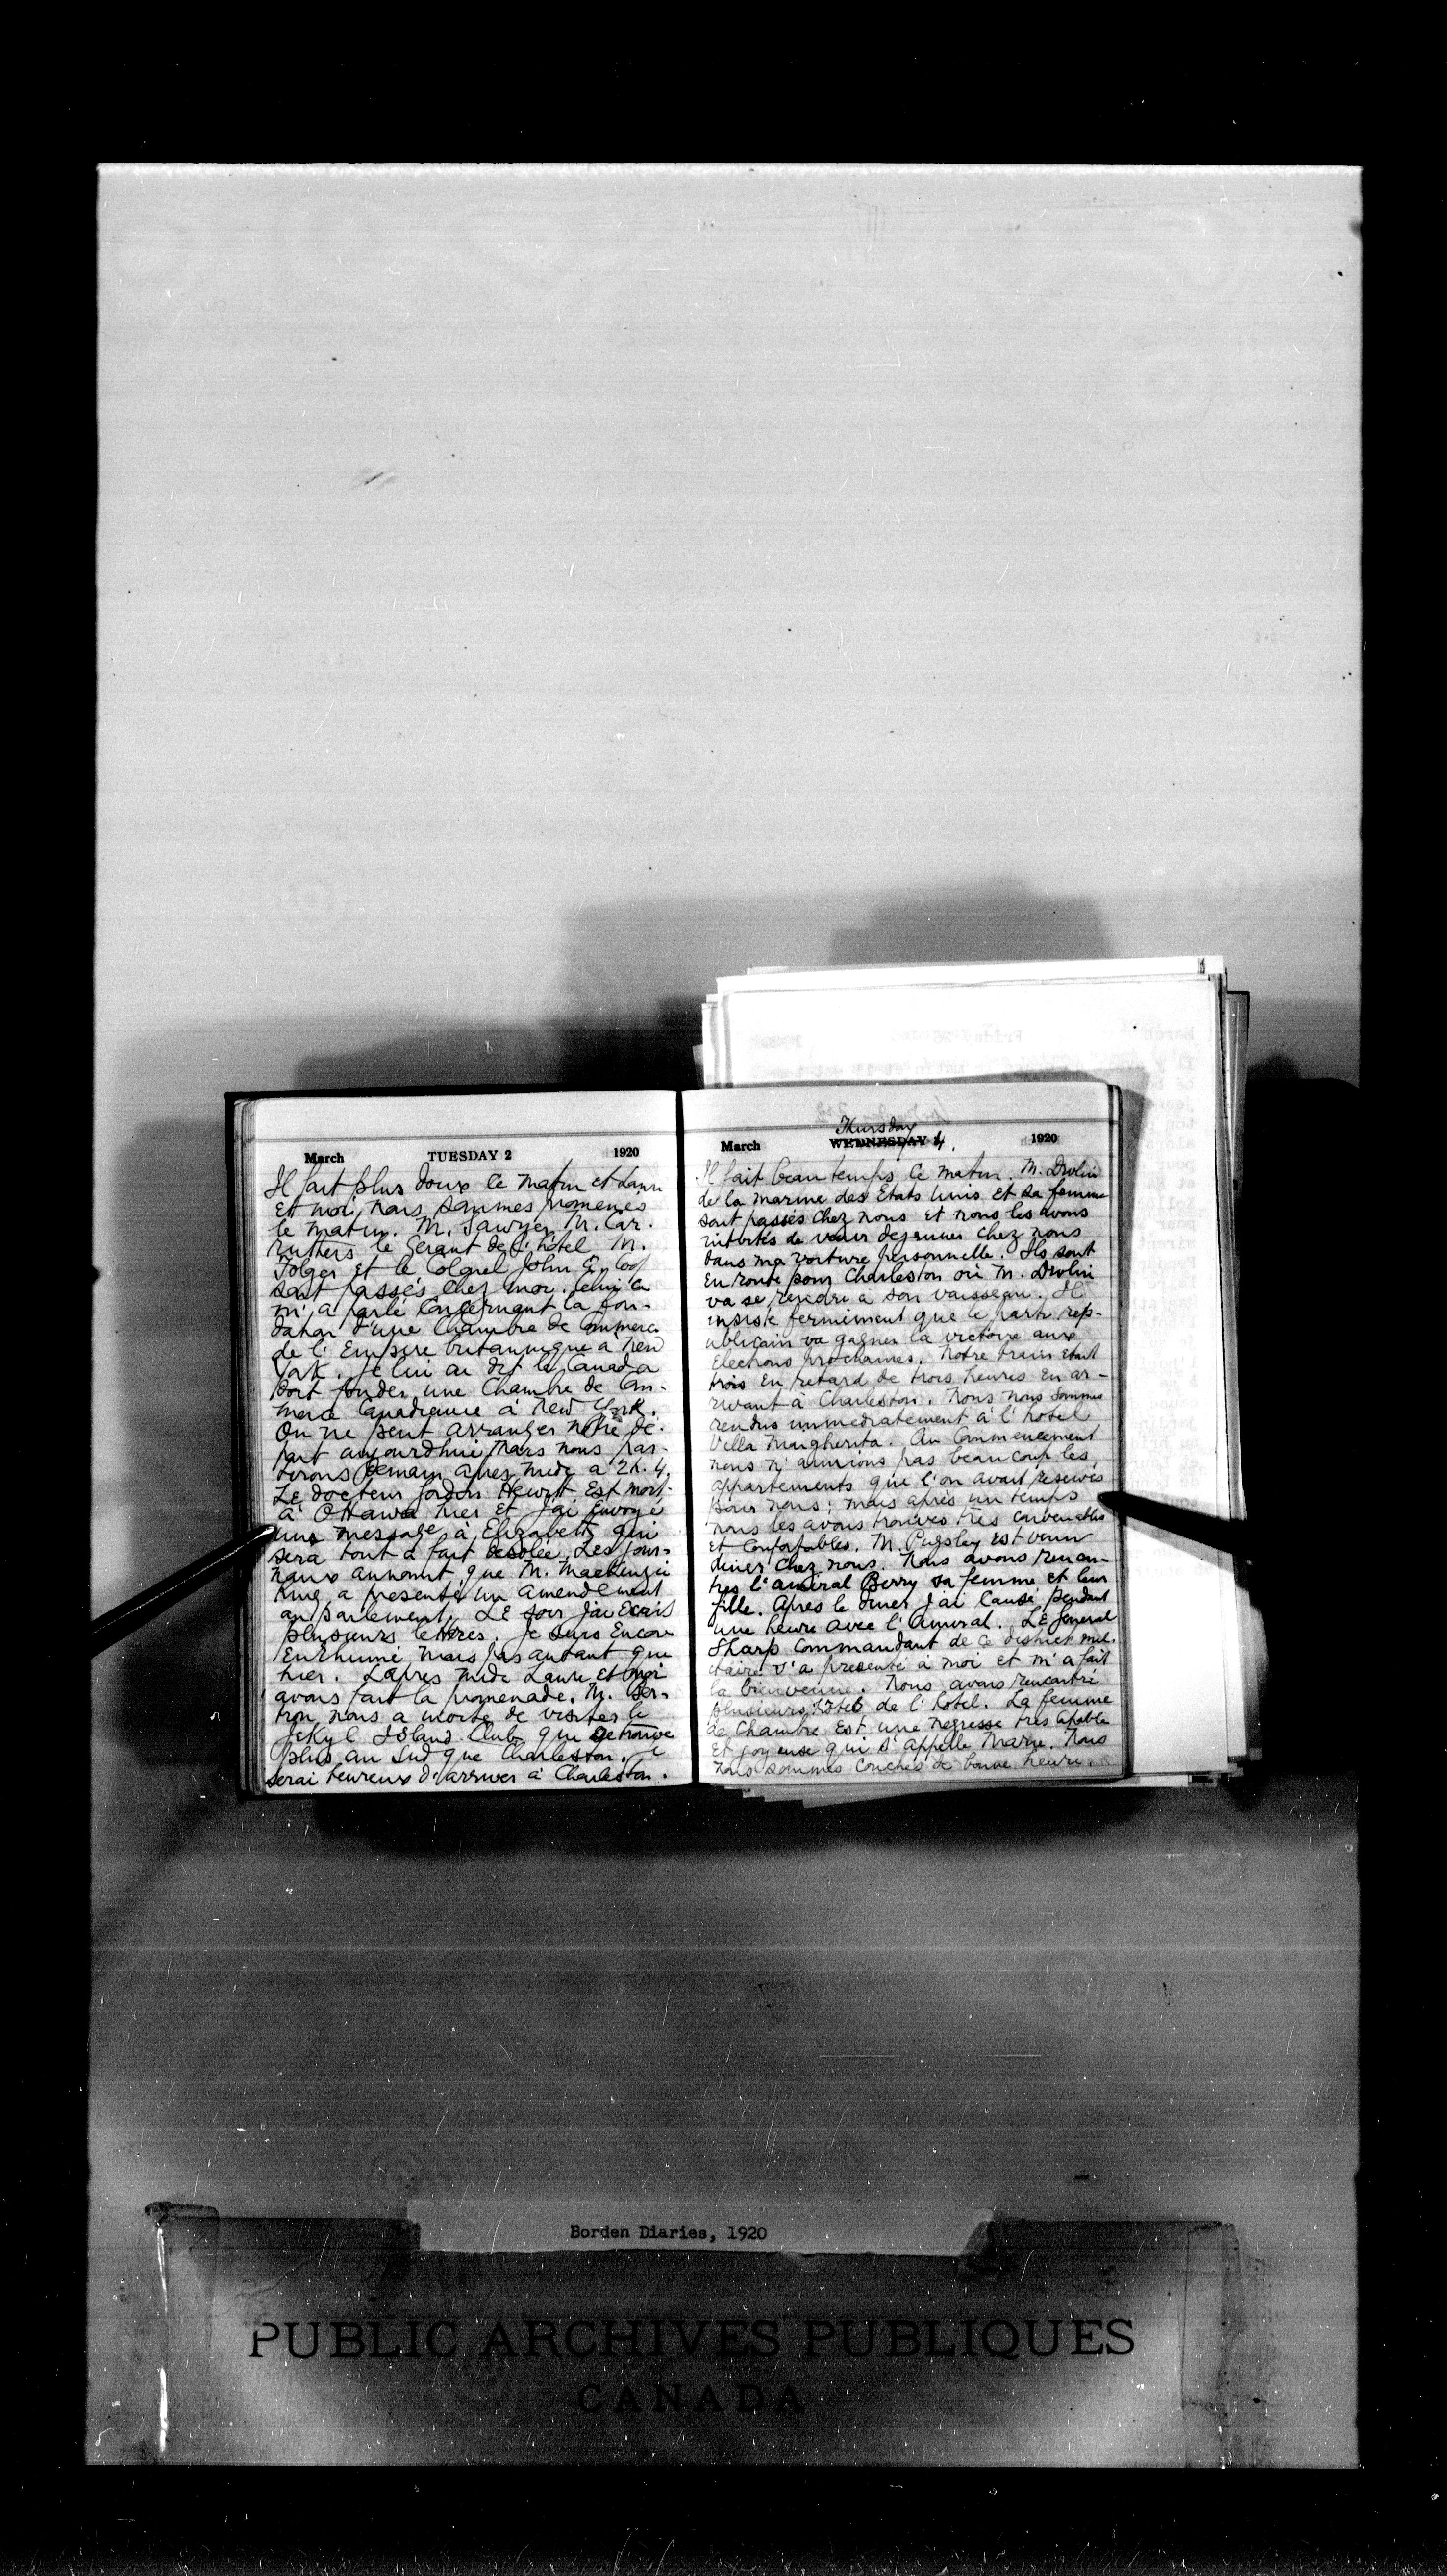 March TUESDAY 2 1920
Il fait plus doux ce matin et Laura
et moi, nous sommes promenés
le matin. M. Sawyer M. Car-
ruthers le Gerant de l'hôtel M.
Folger et le Colonel John
sont passés chez moi. celui ci
m'a parlé concernant la fon-
dation d'une Chambre de Commerce
de l'Empire britannique à New
York. Je lui ai dit le Canada
doit fonder une Chambre de Com-
merce Canadienne à New York.
On ne peut arranger notre dé-
part aujourdhui mais nous par-
tirons demain apres midi à 2h. 4.
Le docteur Jordon Hewitt est mort
à Ottawa hier et j'ai envoyé
une message à Elizabeth qui
sera tout à fait desolée. Les jour-
naux annoncent que M. MacKenzie
King a presenté un amendement
au parlement. Le soir j'ai ecrit
plusieurs lettres. Je suis encore
enrhumé mais pas autant que
hier. L'apres midi Laura et moi
avons fait la promenade. M.
nous a invité de visiter le
Jekyl Island Club que se trouve
plus au sud que Charleston. Je
serai heureux d'arriver à Charleston.
Thursday
March WEDNESDAY 4. 1920
Il fait beau temps ce matin. M.
de la marine des Etats Unis et sa femme
sont passés chez nous et nous les avons
invités de venir dejeuner chez nous
dans ma voiture personnelle. Ils sont
en route pour Charleston où M.
va se rendre à son vaisseau. Il
insiste fermement que le parti rep-
ublicain va gagner la victoire aux
Elections prochaines. Notre train etait
trois en retard de trois heures en ar-
rivant à Charleston. Nous nous sommes
rendus immediatement à l'hotel
Villa Margherita. Au commencement
nous n'aimions pas beaucoup les
appartements que l'on avait reservés
pour nous: mais après un temps
nous les avons trouvés très convenables
et confortables. M. Pugsley est venu
diner chez nous. Nous avons rencon-
tres l'amiral Berry sa femme et leur
fille. Apres le diner j'ai causé pendant
une heure avec l'amiral. Le general
Sharp commandant de ce district mil-
itaire s'a presenté à moi et m'a fait
la bienvenue. Nous avons rencontré
plusieurs hôtes de l'hotel. La femme
de chambre est une negresse tres capable
et joyeuse qui s'appelle Marie. Nous
nous sommes couchés de bonne heure.
Borden Diaries, 1920
PUBLIC ARCHIVES PUBLIQUES
CANADA